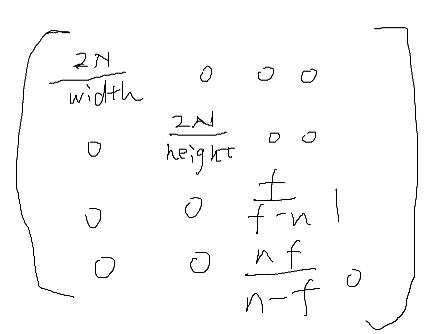 2N/width 0 0 0
0 2N/height 0 0
0 0 f/f-n 1
0 0 nf/n-f 0